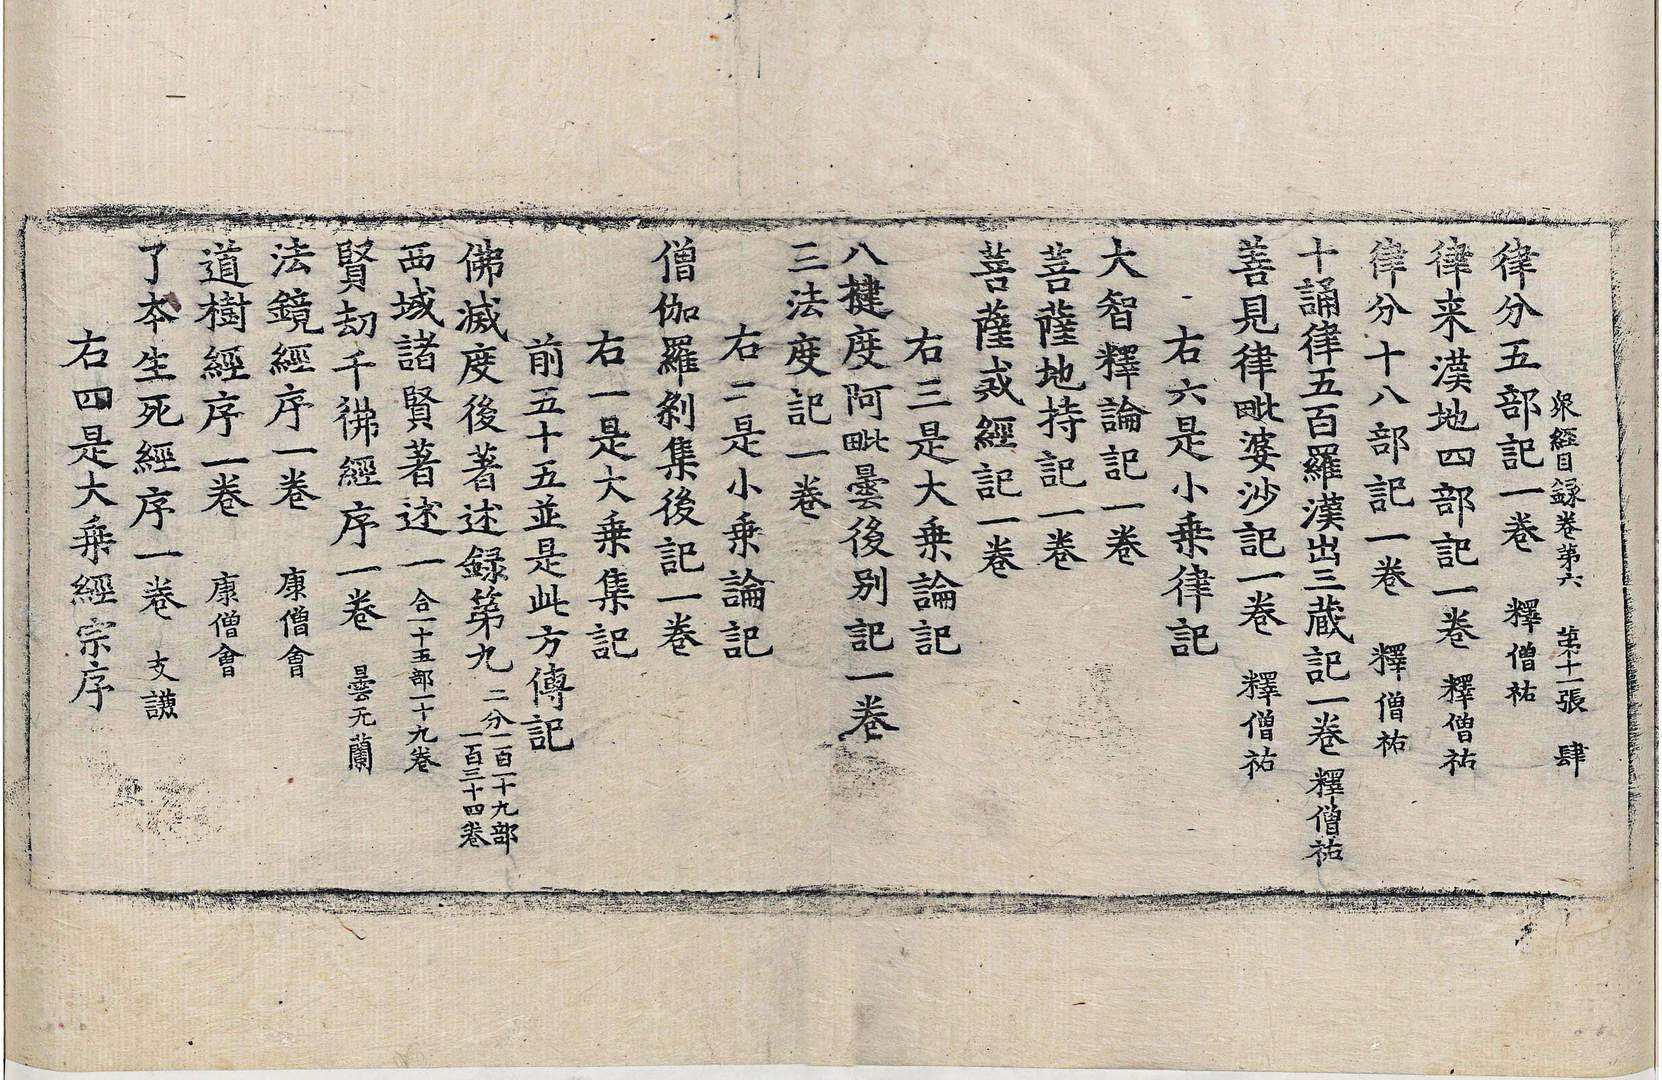 衆經目録卷第六　第十一張　肆
律分五部記一卷　釋僧祐
律来漢地四部記一卷　釋僧祐
律分十八部記一卷　釋僧祐
十誦律五百羅漢出三蔵記一卷　釋僧祐
善見律毗婆沙記一卷　釋僧祐
右六是小乗律記
大智釋論記一卷
菩薩地持記一卷
菩薩戒經記一卷
右三是大乗論記
八揵度阿毗曇後别記一卷
三法度記一卷
右二是小乗論記
僧伽羅剎集後記一卷
右一是大乗集記
前五十五並是此方傳記
佛滅度後著述録第九　二分一百一十九部
一百三十四卷
西域諸賢著述一　合一十五部一十九卷
賢劫千彿經序一卷　曇无蘭
法鏡經序一卷　康僧會
道樹經序一卷　康僧會
了夲生死經序一卷　支謙
右四是大乗經宗序